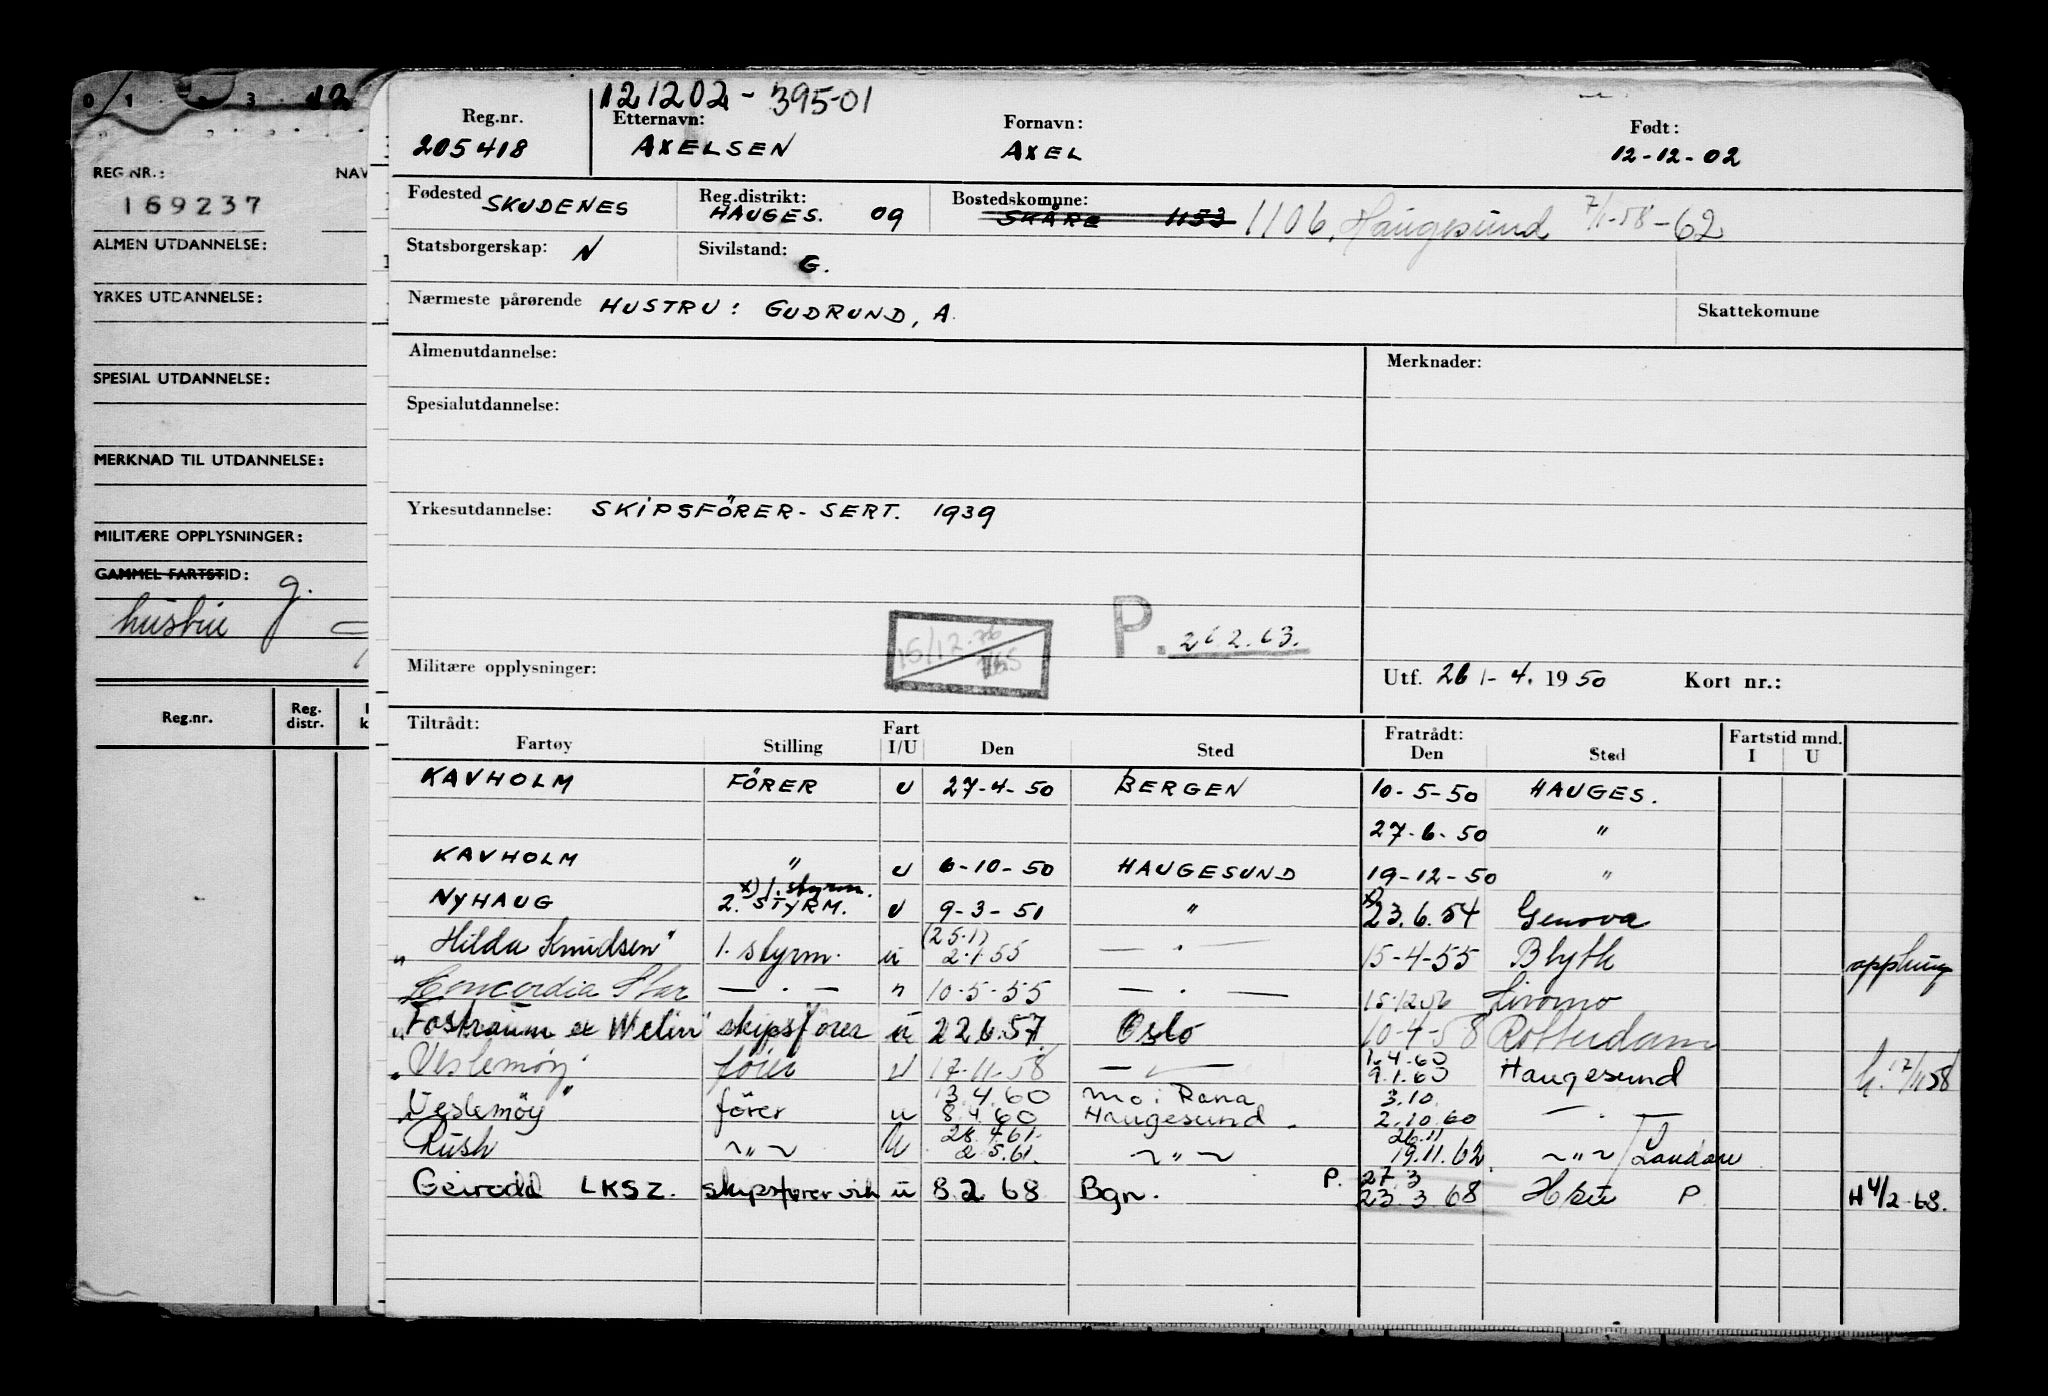 0 1 3 12
REG NR.: NAV
169237
ALMEN UTDANNELSE:
YRKES UTDANNELSE:
SPESIAL UTDANNELSE:
MERKNAD TIL UTDANNELSE:
MILITÆRE OPPLYSNINGER:
GAMMEL FARTSTID:
g.
hustru
Reg.nr. Reg. distr.
121202-395-01
Reg.nr. Etternavn: Fornavn: Født:
205418 AXELSEN AXEL 12-12-02
Fødested SKUDENES Reg.distrikt: HAUGES. 09 Bostedskommune: SKÅRE 1153 1106, Haugesund 7/1-58-62
Statsborgerskap: N Sivilstand: G.
Nærmeste pårørende HUSTRU: GUDRUND, A. Skattekomune
Almenutdannelse: Merknader:
Spesialutdannelse:
Yrkesutdannelse: SKIPSFÖRER-SERT. 1939
15/12.76
P. 262.63.
Militære opplysninger: Utf. 26/-4. 1950 Kort nr.:
Tiltrådt: Fart Fratrådt: Fartstid mnd.
Fartøy Stilling I/U Den Sted Den Sted I U
KAVHOLM FÖRER U 27-4-50 BERGEN 10-5-50 HAUGES.
27-6-50 "
KAVHOLM " U 6-10-50 HAUGESUND 19-12-50 "
x) 1. styrm.
NYHAUG 2. STYRM. U 9-3-51 " x) 23.6.54 Genova
(25.1)
"Hilda Knudsen" 1. styrm. u 2.1.55 — . — 15-4-55 Blyth
Concordia Star — . — " 10-5-55 — . — 15.12.56 Livorno
"Fostraum ex Welin" skipsförer u 22.6.57 Oslo 10-4-58 Rotterdam
1.4.60
"Veslemöy" förer u 17-11-58 — " — 9.1.60 Haugesund h. 17/11 58
13.4.60 Mo i Rana 3.10.
"Veslemöy" förer u 8.4.60 Haugesund. 2.10.60 — . —
28.4.61. 26.11
Rush ~ " ~ U 2.5.61. ~ " ~ 19.11.62. ~ " ~ /London
P. 27.3
Geirodd LKSZ. skipsförer vik u 8.2.68 Bgn. 23.3.68 Hsu P H 4/2-68.